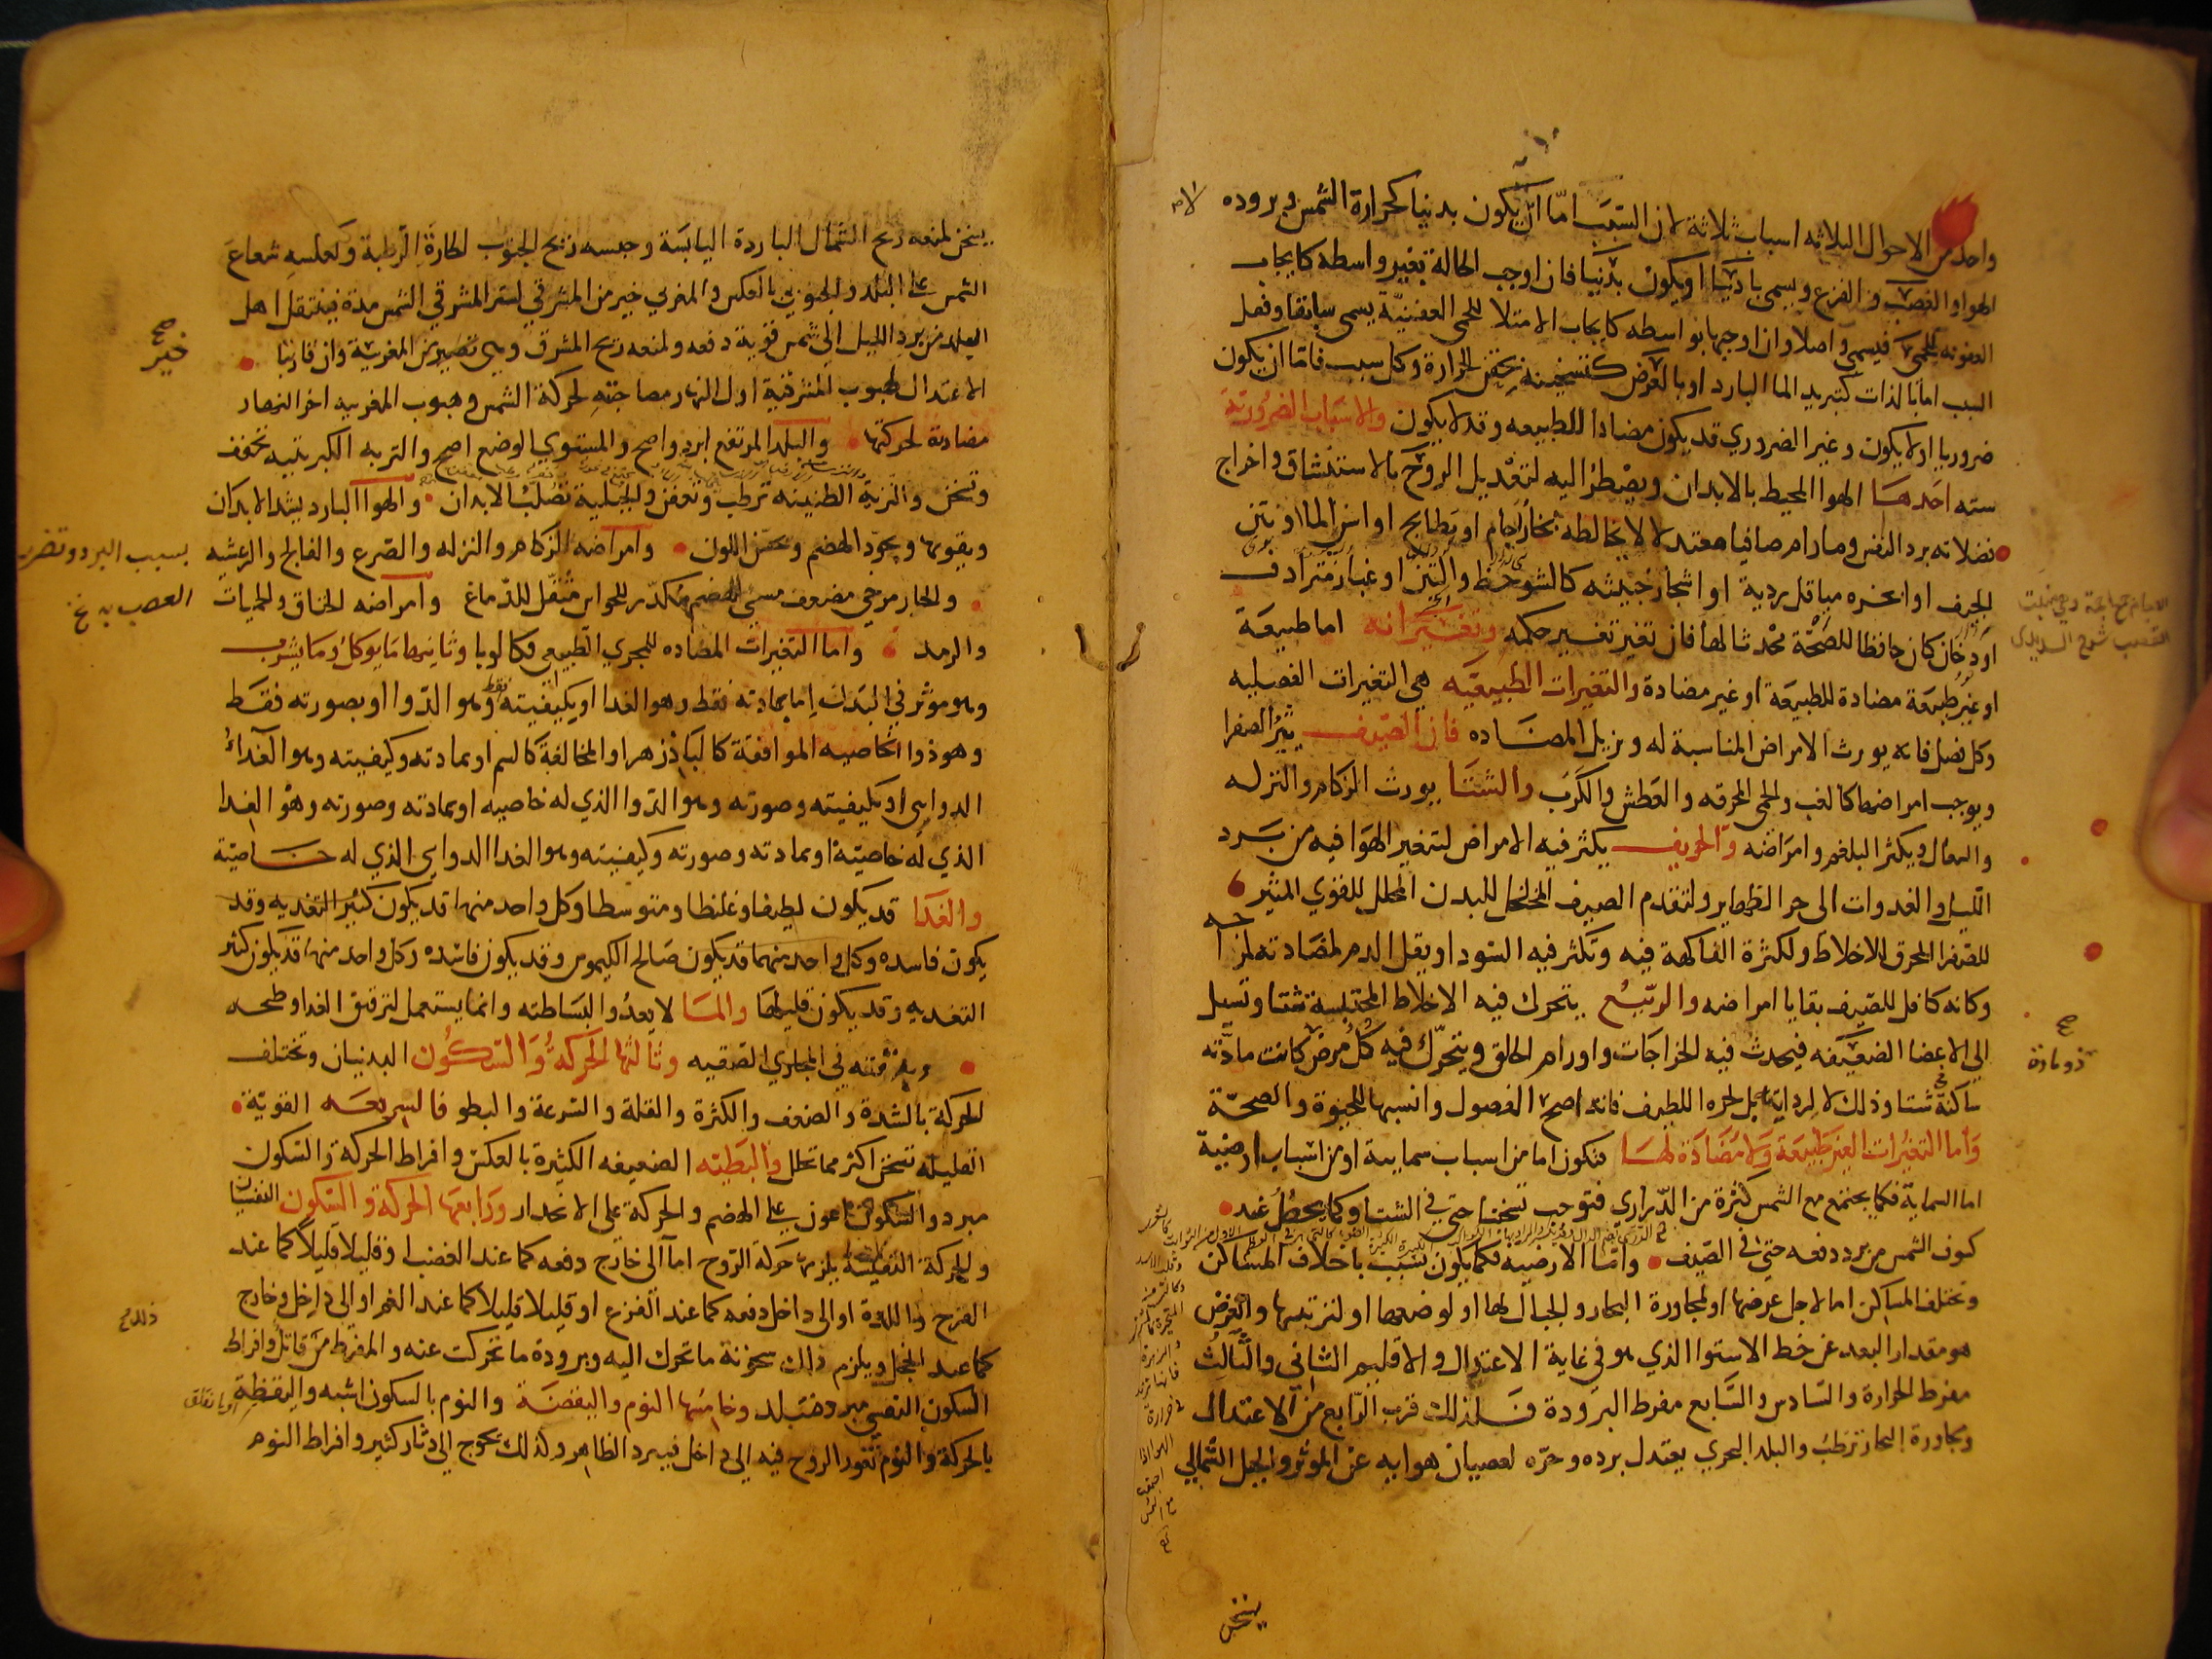 واحد من الاحوال الثلاثه اسباب ثلاثة لان السبب امّا ان يكون بدنيا كحرارة الشمس وبروده
الهوا والغضب والفزع ويسمى باديا او يكون بدنيا فان اوجب الحالة بغير واسطه كايجاب
العفونه للحمى فيسمى واصلا وان اوجبها بواسطه كايجاب الامتلا للحمى العفنيّة يسمى سابقا وفعل
السبب اما بالذات كتبريد الما البارد او بالعرض كتسخينه بحقن الحرارة وكل سبب فامّا ان يكون
ضروريا او لا يكون وغير الضروري قد يكون مضادا للطبيعه وقد لا يكون والاسباب الضرورية
سته احدها الهوا المحيط بالابدان ويضطرّ اليه لتعديل الروح بالاستنشاق واخراج
فضلاته برد النفس وما دام صافيا معتدلا لا يخالطه بخار اجام او بطايح او اسن الما او نتن
الجيف او ابخره مباقل ردية او اشجار خبيثه كالشوحط والتين او غبار مترادف
او دخان كان حافظا للصّحّة محدثا لها فان تغير تغير حكمه وتغيراته اما طبيعة
او غير طبيعة مضادة للطبيعة او غير مضادة والتغيرات الطبيعيه هي التغيرات الفصليه
وكل فصل فانه يورث الامراض المناسبة له ويزيل المضاده فان الصيف يثير الصفرا
ويوجب امراضها كالغب والحمى المحرقه والعطش والكرب والشتا يورث الزكام والنزله
والسعال ويكثر البلغم وامراضه والخريف يكثر فيه الامراض لتغير الهوا فيه من برد
الليل والغدوات الى حر الظهاير ولتقدم الصيف المخلخل للبدن المحلل للقوي المثير
للصّفرا المحرق للاخلاط ولكثرة الفاكهة فيه وتكثر فيه السودا ويقل الدم لمضادته لمزاجه
وكانه كافل للصّيف بقايا امراضه والربيع يتحرك فيه الاخلاط المحتبسة شتا وتسيل
الى الاعضا الضعيفه فيحدث فيه الخراجات واورام الحلق ويتحرّك فيه كل مرض كانت مادّته
ساكنة شتا وذلك لا لرداته بل لحره اللطيف فانه اصح الفصول وانسبها للحيوة والصحّة
واما التغيرات الغير طبيعة ولا مضادة لها فتكون اما من اسباب سماية او من اسباب ارضية
اما السماية فكما يجتمع مع الشمس كثرة من الدّراري فتوجب تسخينا حتى في الشتا وكما يحصل عند
كسوف الشمس من برد دفعه حتى في الصّيف وامّا الارضيه فكما يكون بسبب باختلاف المساكن
وتختلف المساكن اما لاجل عرضها او لمجاورة البحار والجبال لها او لوضعها او لتربتها والعرض
هو مقدار البعد عن خط الاستوا الذي هو في غاية الاعتدال والاقليم الثاني والثالث
مفرط الحرارة والسّادس والسّابع مفرط البرودة فلذلك قرب الرّابع من الاعتدال
ومجاورة البحار ترطب والبلد البحري يعتدل برده وحرّه لعصيان هوايه عن الموثر والجبل الشّمالي
يسخن
صح
ذو مادة
يسخن لمنعه ريح الشمال الباردة اليابسة وحبسه ريح الجنوب الحارة الرطبة ولعكسه شعاع
الشمس على البلد والجنوبي بالعكس والمغربي خير من المشرقي لستر المشرقي الشمس مدة فينتقل اهل
البلد من برد الليل الى شمس قوية دفعه ولمنعه ريح المشرق وهي خير من المغربية وان قاربتا
الاعتدال لهبوب المشرقية اول النهار مصاحبة لحركة الشمس وهبوب المغربيه اخر النهار
مضادة لحركتها والبلد المرتفع ابرد واصح والمستوي الوضع اصح والتربه الكبريتيه تجفف
وتسخن والتربة الطينيه ترطب وتعفن والجبلية تصلب الابدان والهوا البارد يشد الابدان
ويقويها ويجوّد الهضم ويحسّن اللون وامراضه الزكام والنزله والصّرع والفالج والرعشه
والحار مرخي مضعف مسي للهضم مكدّر للحواس مثقّل للدّماغ وامراضه الخناق والحميات
والرمد واما التغيرات المضاده للمجري الطبيعي فكالوبا وثانيها ما يوكل وما يشرب
وهو موثر في البدن اما بمادته فقط وهو الغدا او بكيفيته فقط وهو الدّوا او بصورته فقط
وهو ذوا الخاصيه الموافقة كالبادزهر او المخالفة كالسم او بمادته وكيفيته وهو الغدا
الدوايى او بكيفيته وصورته وهو الدّوا الذي له خاصيه او بمادته وصورته وهو الغدا
الذي له خاصيّة او بمادته وصورته وكيفيته وهو الغدا الدوايى الذي له خاصيّة
والغدا قد يكون لطيفا وغليظا ومتوسطا وكل واحد منها قد يكون كثير التغديه وقد
يكون فاسده وكل واحد منهما قد يكون صالح الكيموس وقد يكون فاسده وكل واحد منها قد يكون كثير
التغديه وقد يكون قليلها والما لا يغدوا لبساطته وانما يستعمل لترقيق الغدا وطبخه
وبذرقته في المجاري الضيقه وثالثها الحركة والسكون البدنيان وتختلف
الحركة بالشدة والضعف والكثرة والقلة والسّرعة والبطو فالسريعه القويّة
القليله تسخن اكثر مما تحلل والبطيه الضعيفه الكثيرة بالعكس وافراط الحركة والسكون
مبرد والسكون معون على الهضم والحركة على الانحدار ورابعها الحركة والسكون النفسيان
والحركة النفسية يلزمها حركة الرّوح اما الى خارج دفعه كما عند الغضب او قليلا قليلا كما عند
الفرح واللذة او الى داخل دفعه كما عند الفزع او قليلا قليلا كما عند الغم او الى داخل وخارج
كما عند الخجل ويلزم ذلك سخونة ما تحرك اليه وبرودة ما تحركت عنه والمفرط من قاتل وافراط
السكون النفسي مبرد مبلد وخامسها النوم واليقضة والنوم بالسكون اشبه واليقظة
بالحركة والنوم تغور الروح فيه الى داخل فيبرد الظاهر ولذلك يحوج الى دثار كثير وافراط النوم
صح
خير
بسبب البرد وتضرر
العصب به خ